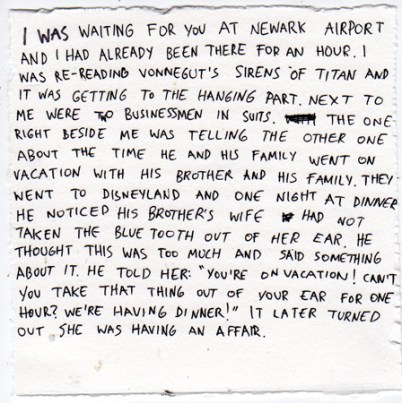 I WAS WAITING FOR YOU AT NEWARK AIRPORT
AND I HAD ALREADY BEEN THERE FOR AN HOUR. I
WAS RE-READING VONNEGUT'S SIRENS OF TITAN AND
IT WAS GETTING TO THE HANGING PART. NEXT TO
ME WERE TWO BUSINESSMEN IN SUITS. THE ONE
RIGHT BESIDE ME WAS TELLING THE OTHER ONE
ABOUT THE TIME HE AND HIS FAMILY WENT ON
VACATION WITH HIS BROTHER AND HIS FAMILY. THEY
WENT TO DISNEYLAND AND ONE NIGHT AT DINNER
HE NOTICED HIS BROTHER'S WIFE HAD NOT
TAKEN THE BLUE TOOTH OUT OF HER EAR. HE
THOUGHT THIS WAS TOO MUCH AND SAID SOMETHING
ABOUT IT. HE TOLD HER: "YOU'RE ON VACATION! CAN'T
YOU TAKE THAT THING OUT OF YOUR EAR FOR ONE
HOUR? WE'RE HAVING DINNER!" IT LATER TURNED
OUT SHE WAS HAVING AN AFFAIR.